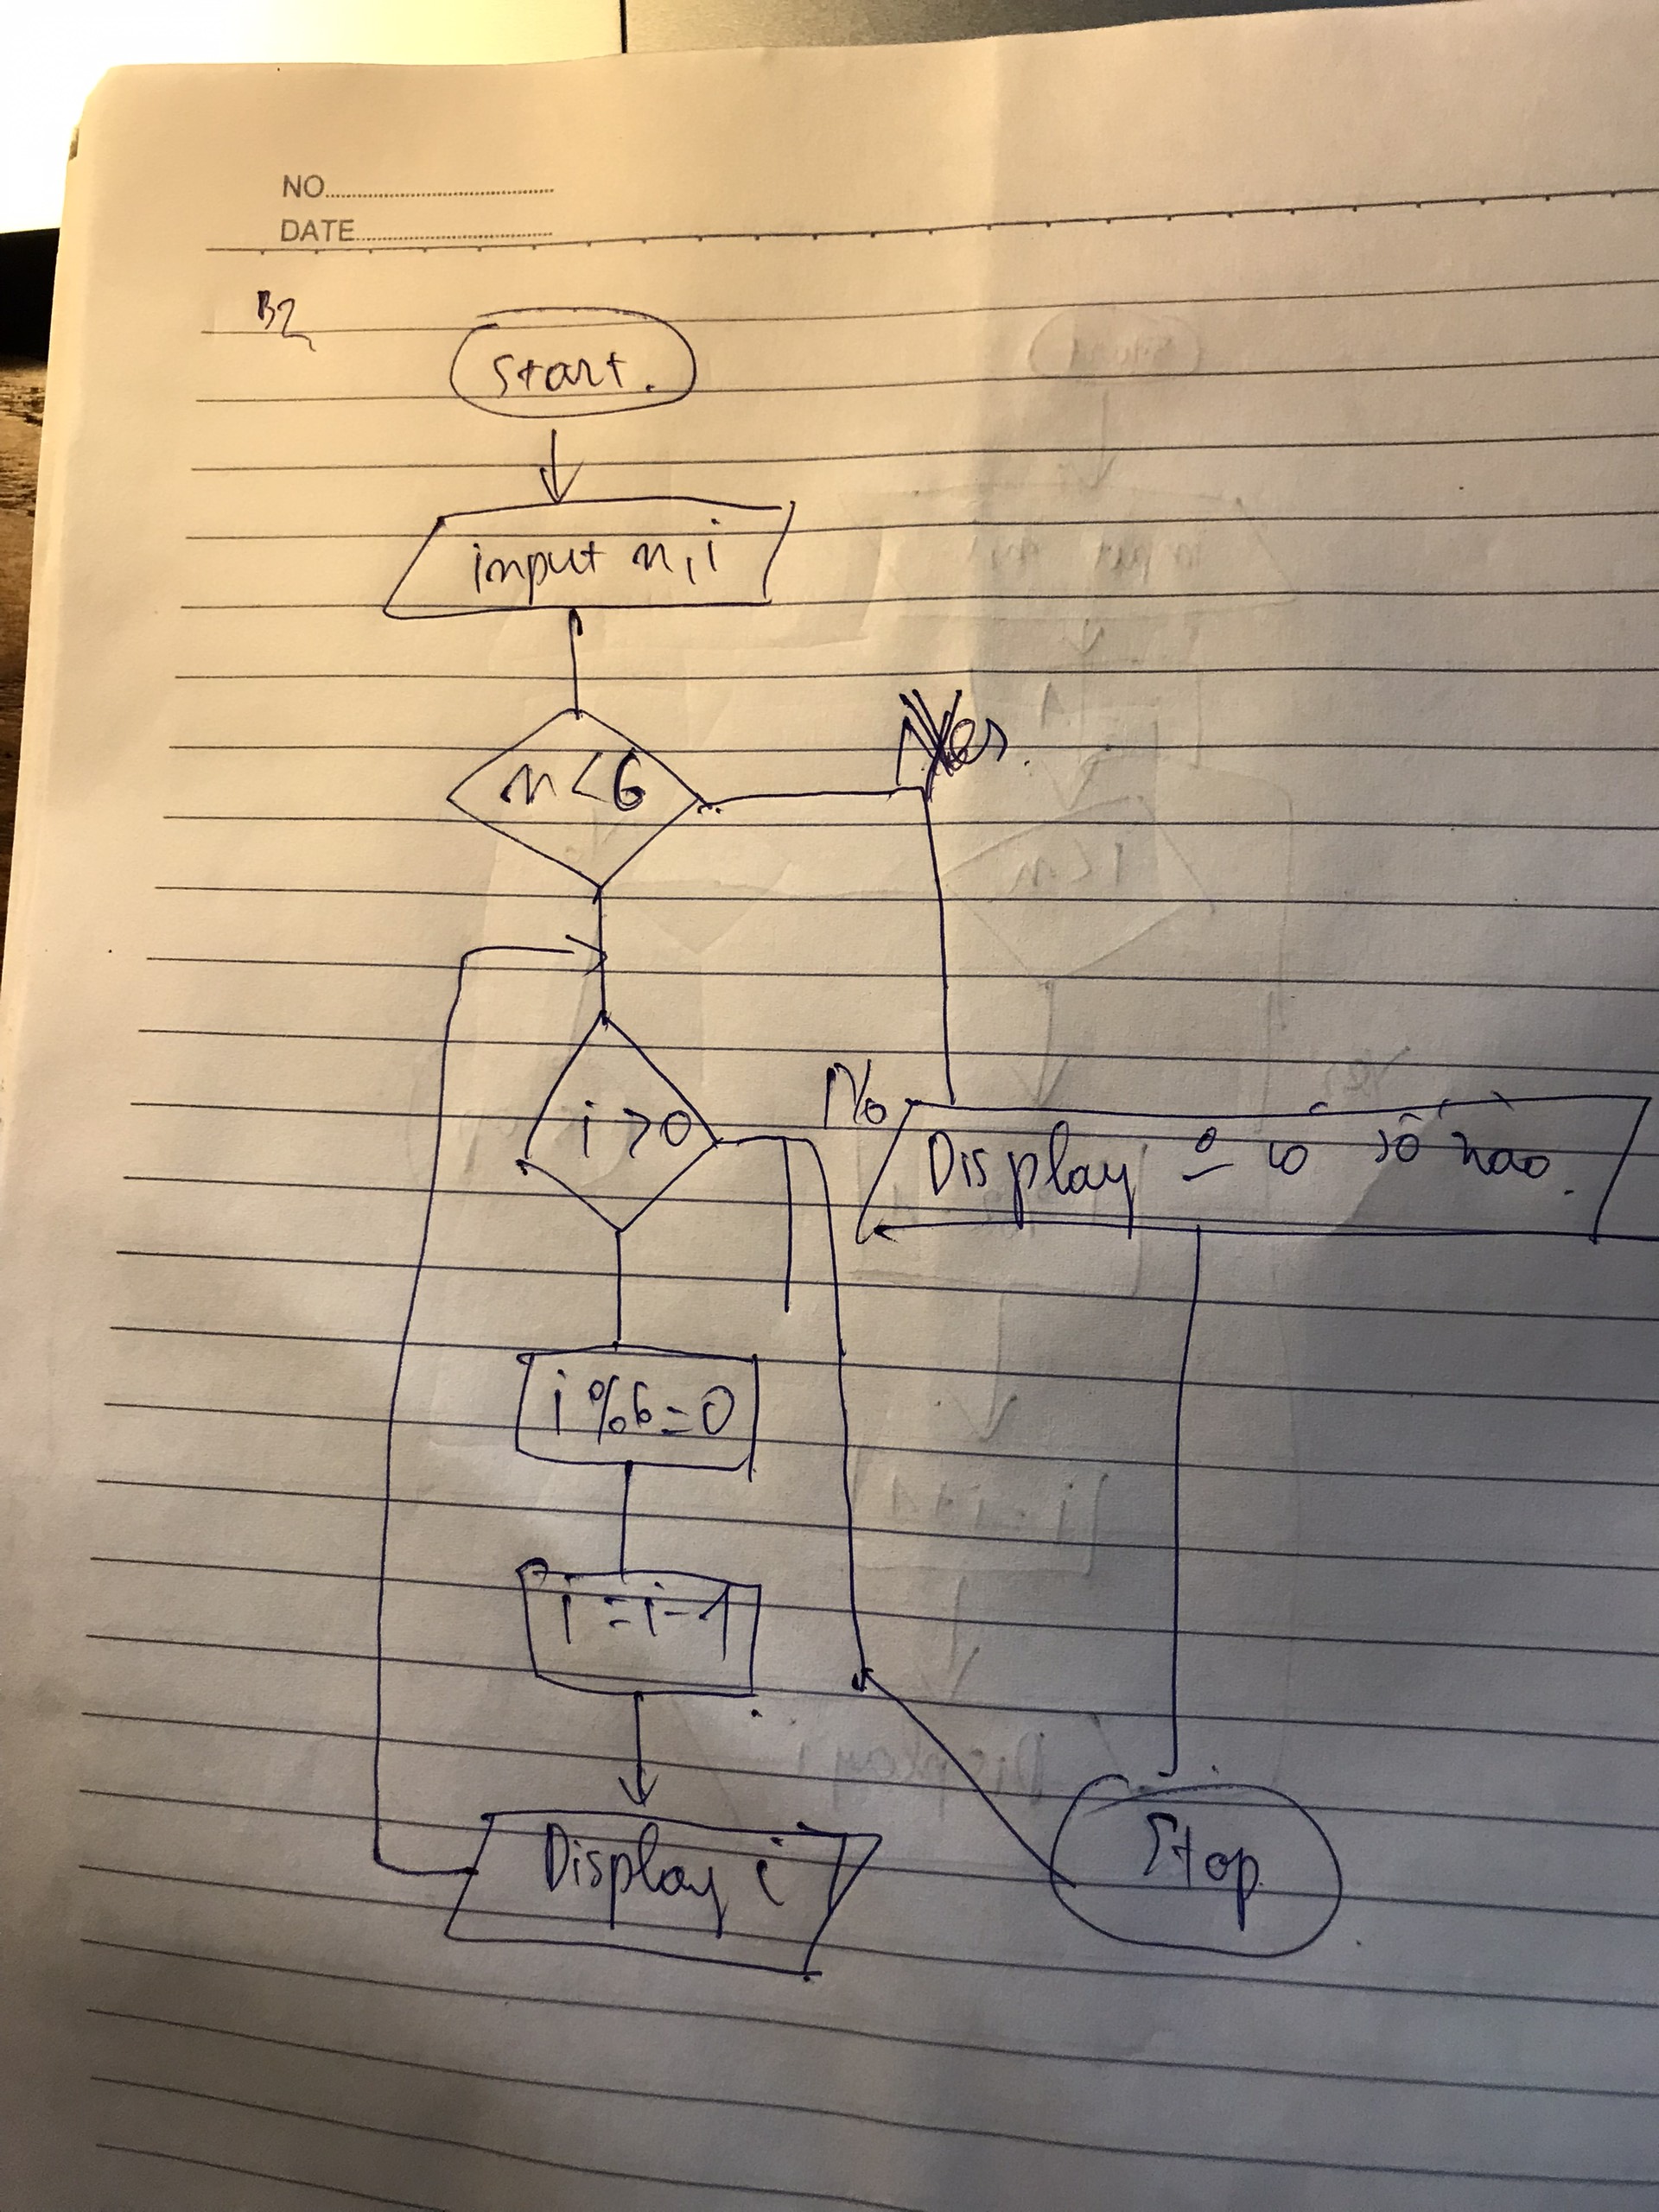 NO
DATE
B2
Start.
input n, i
n < 6
Yes.
i > 0
No
Display có số nào.
i % 6 = 0
i = i - 1
Display i
Stop